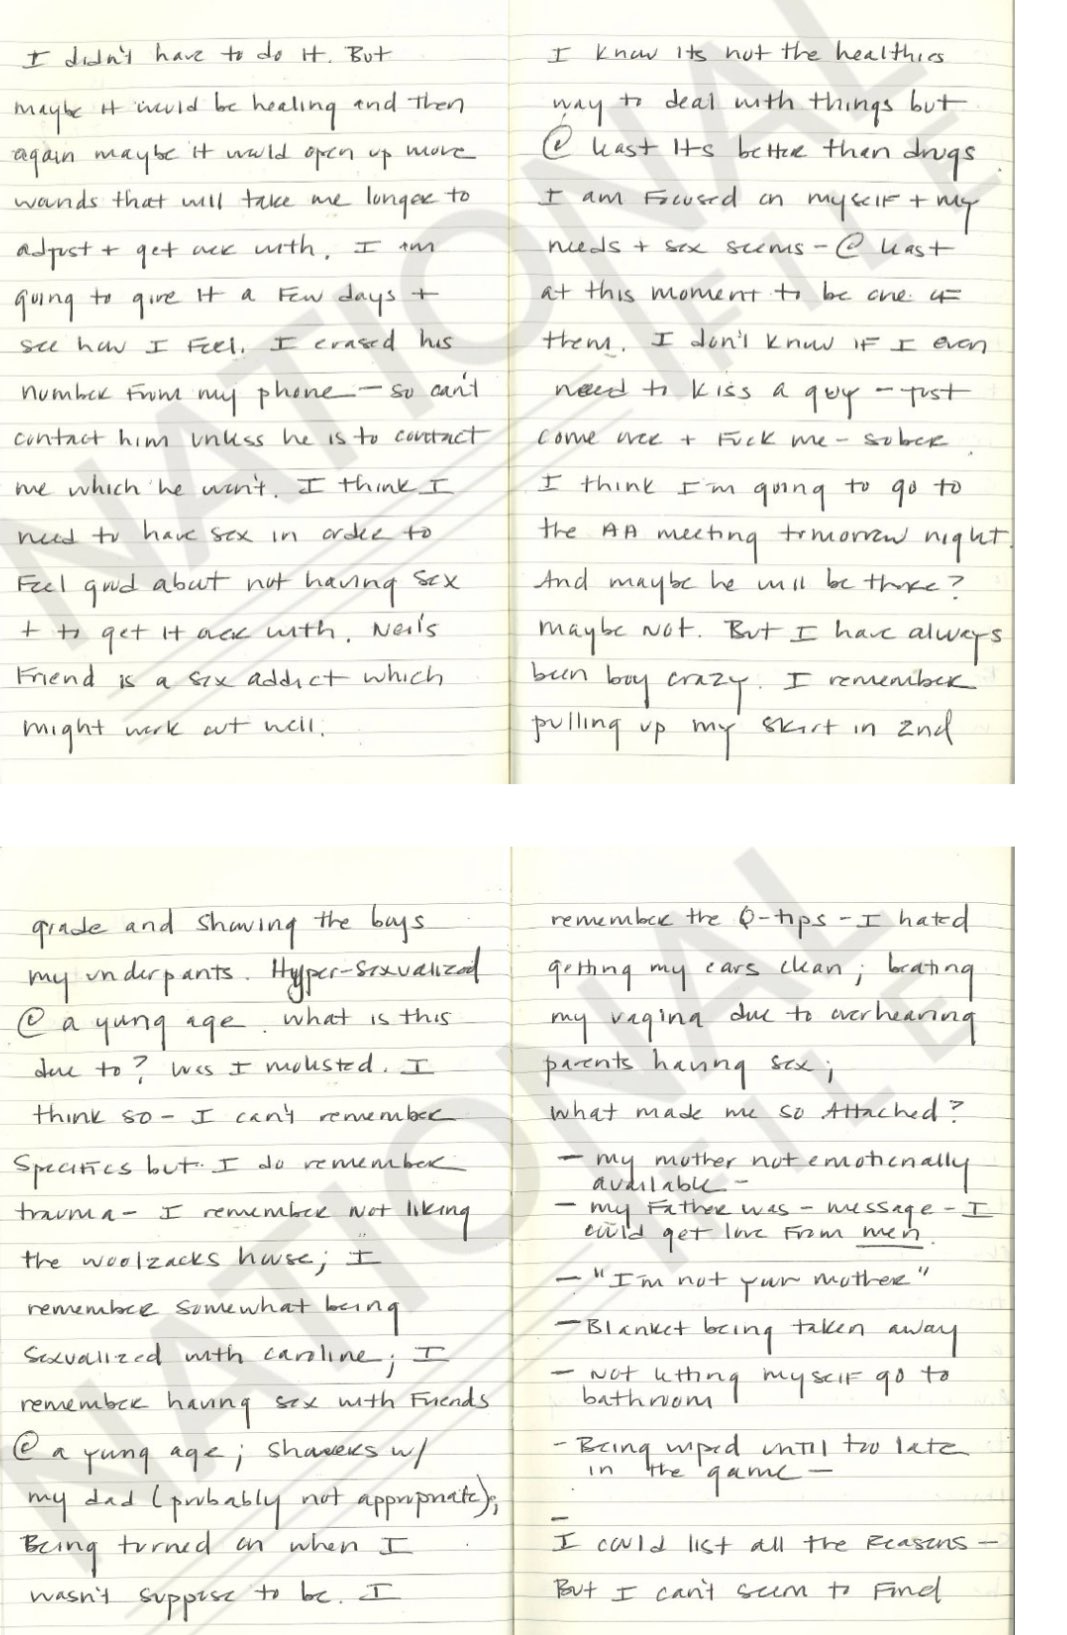 I didn't have to do it. But
maybe it would be healing and then
again maybe it would open up more
wounds that will take me longer to
adjust + get over with. I am
going to give it a few days +
see how I feel. I erased his
number from my phone - so can't
contact him unless he is to contact
me which he won't. I think I
need to have sex in order to
feel good about not having sex
+ to get it over with. Neil's
friend is a sex addict which
might work out well.
I know its not the healthies
way to deal with things but
@ least its better than drugs
I am focused on myself + my
needs + sex seems - @ least
at this moment to be one of
them. I don't know if I even
need to kiss a guy - just
come over + fuck me - sober.
I think I'm going to go to
the AA meeting tomorrow night.
And maybe he will be there?
maybe not. But I have always
been boy crazy. I remember
pulling up my skirt in 2nd
grade and showing the boys
my underpants. Hyper-sexualized
@ a yung age. what is this
due to? Was I molested. I
think so - I can't remember
specifics but I do remember
trauma - I remember not liking
the woolzacks house; I
remember somewhat being
sexualized with caroline; I
remember having sex with friends
@ a yung age; showers w/
my dad (probably not appropriate);
Being turned on when I
wasn't suppose to be. I
remember the Q-tips - I hated
getting my ears clean; beating
my vagina due to overhearing
parents having sex;
What made me so Attached?
- my mother not emotionally
available -
- my Father was - message - I
could get love from men.
- "I'm not your mother"
- Blanket being taken away
- Not letting myself go to
bathroom
- Being wiped until too late
in the game -
-
I could list all the reasons -
But I can't seem to find
NATIONAL
FILE
NATIONAL
FILE